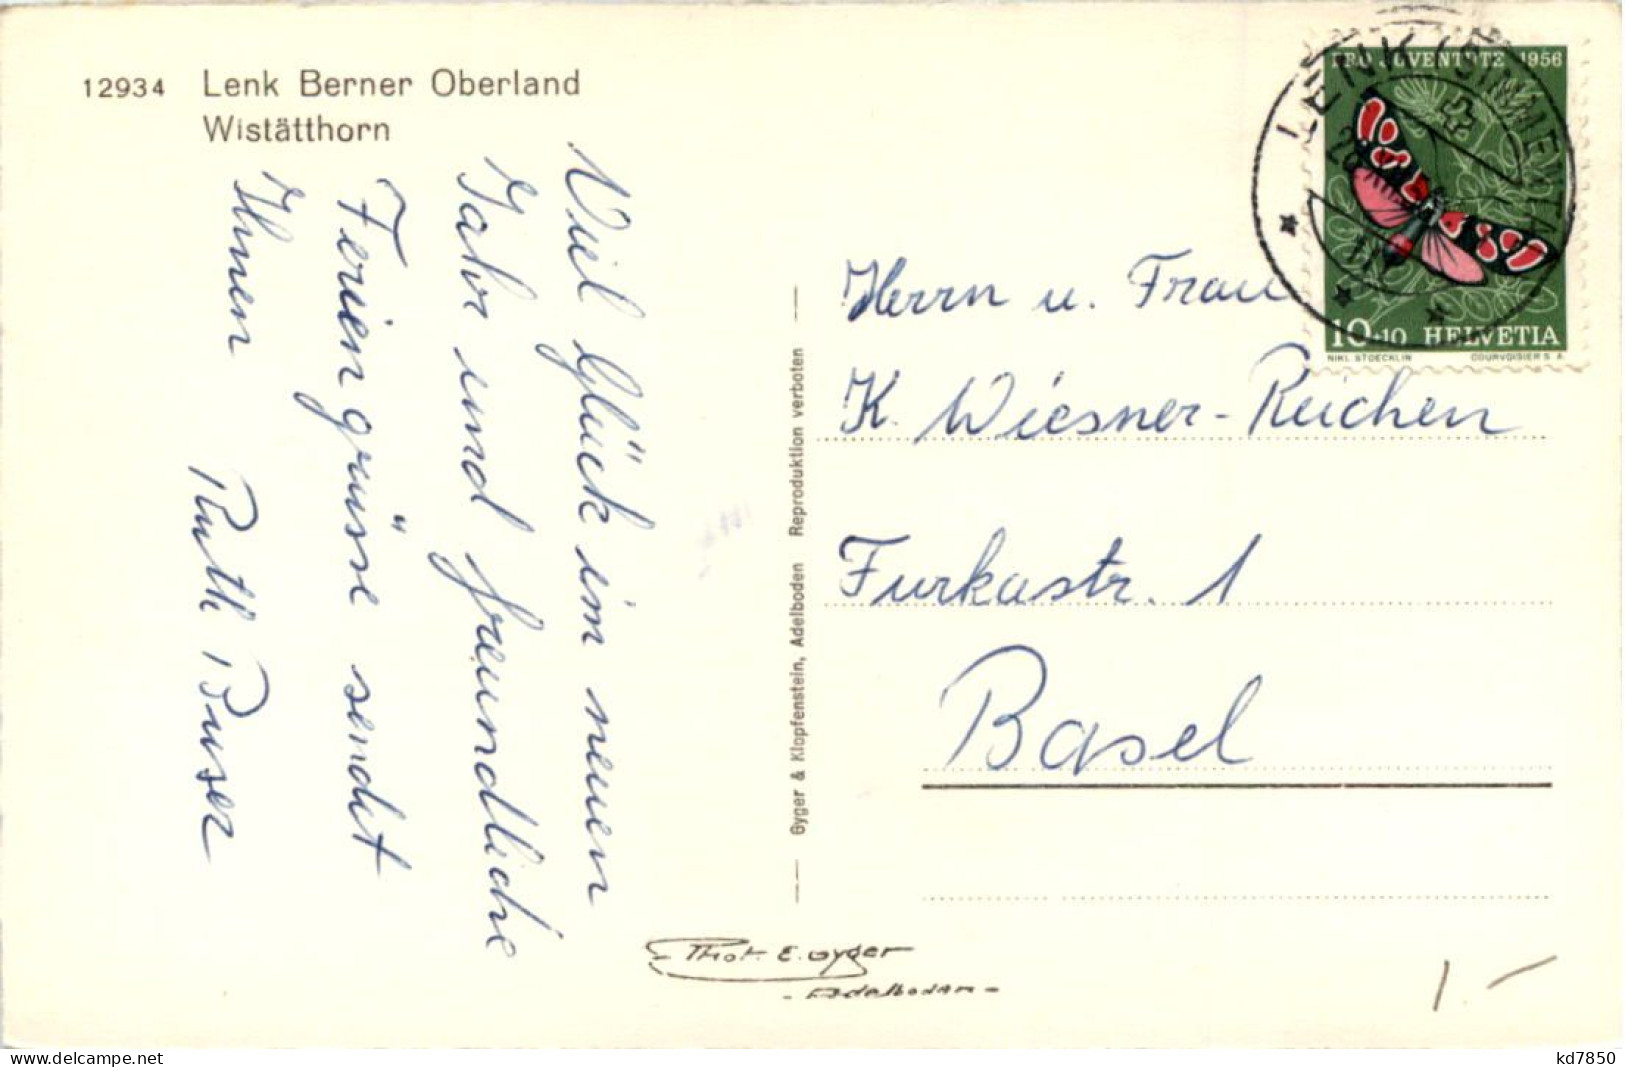 12934 Lenk Berner Oberland
Wistätthorn
Viel Glück im neuen
Jahr und freundliche
Feriengrüsse sendet
Ihnen Ruth Buser
Gyger & Klopfenstein, Adelboden Reproduktion verboten
Phot. E. Gyger
- Adelboden -
PRO JUVENTUTE 1956
10+10 HELVETIA
NIKL. STOECKLIN COURVOISIER S.A.
LENK (SIMMENTAL)
Herrn u. Frau
K. Wiesner-Reichen
Furkastr. 1
Basel
1.-
kd7850
www.delcampe.net